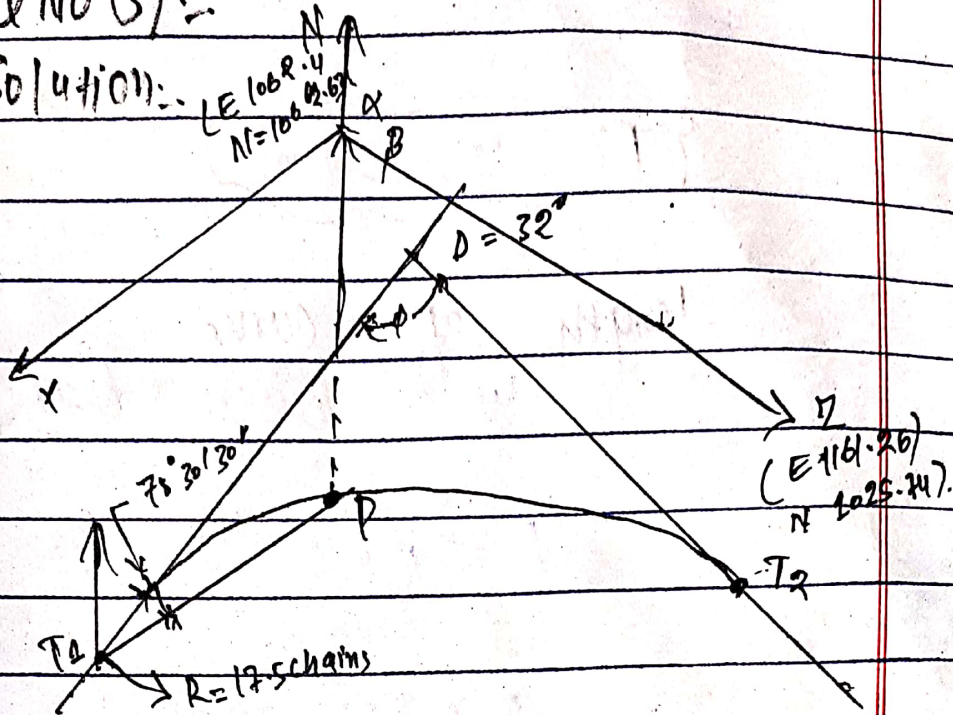 Solution:-
N
(E 1062.4
α
β
D = 32°
φ
X
Z
(E 1161.26)
N 1025.74).
78° 30' 30"
P
T2
T1
R = 17.5 chains